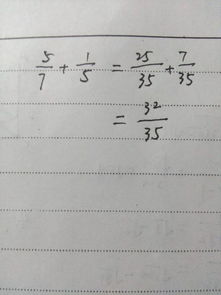 5/7 + 1/5 = 25/35 + 7/35
= 32/35